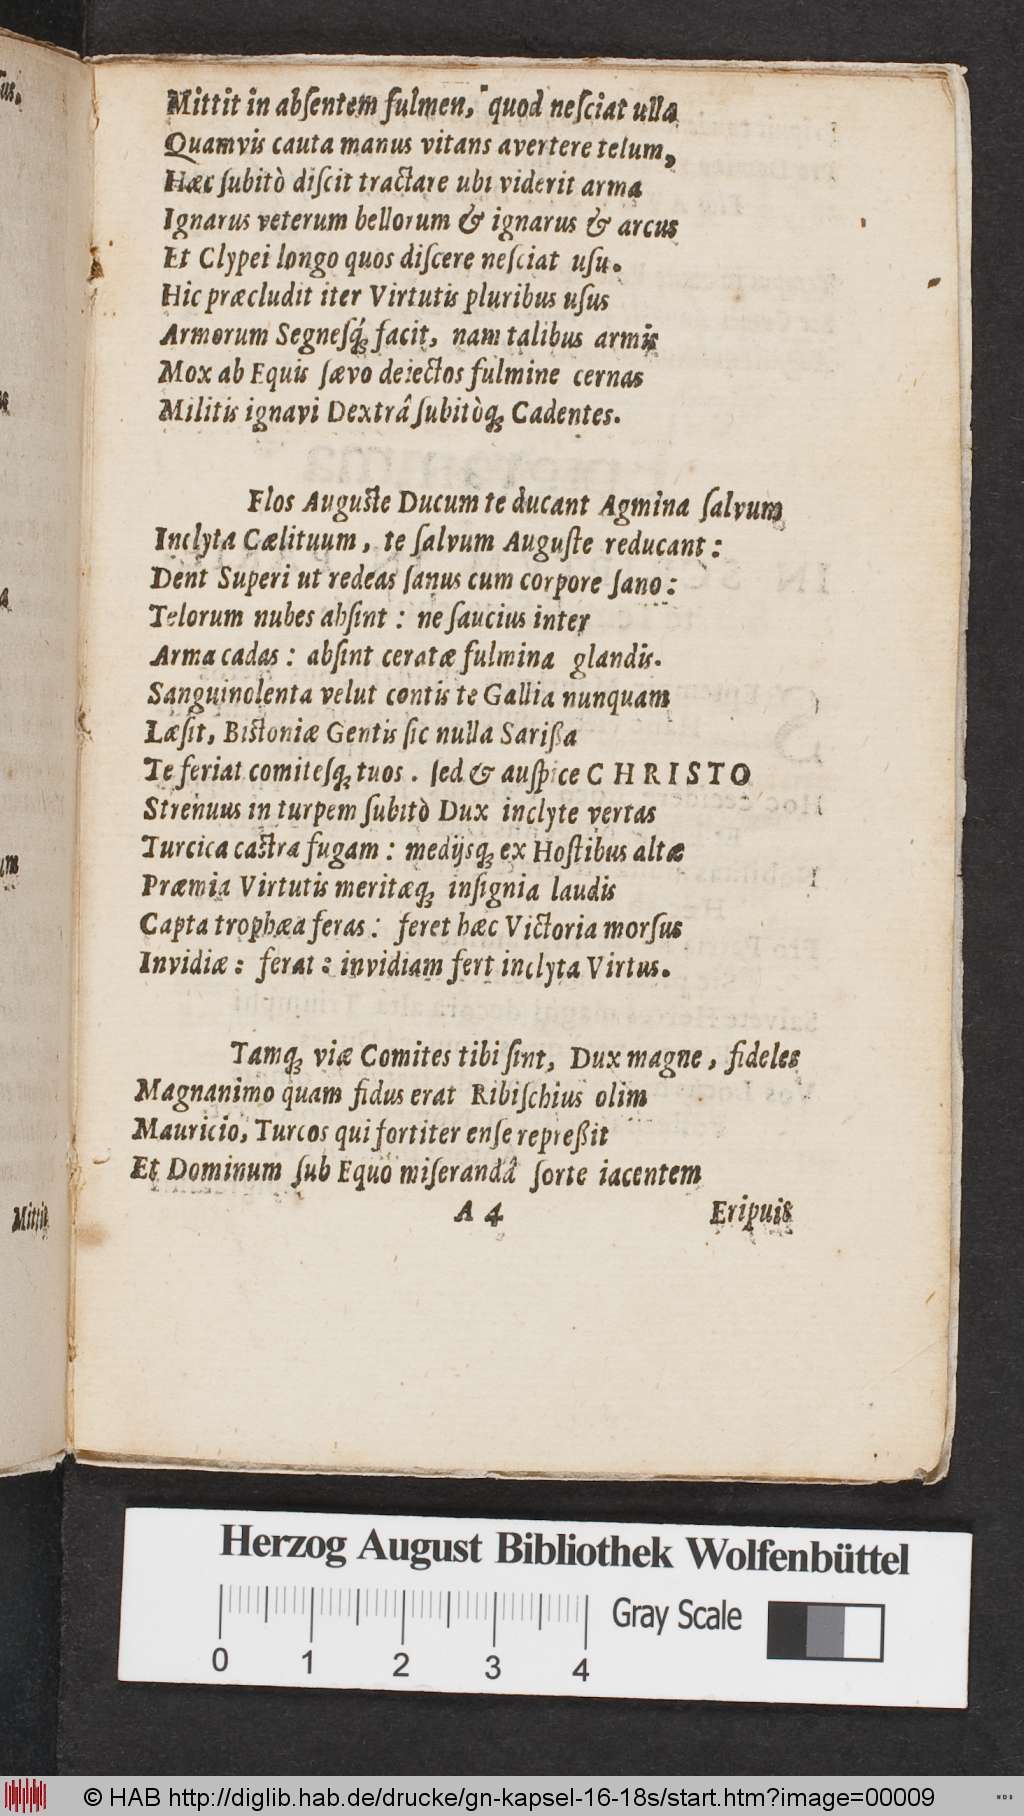 us.
Mittit in absentem fulmen, quod nesciat ulla
Quamvis cauta manus vitans avertere telum,
Hæc subitò discit tractare ubi viderit arma
Ignarus veterum bellorum & ignarus & arcus
Et Clypei longo quos discere nesciat usu.
Hic præcludit iter Virtutis pluribus usus
Armorum Segnesq́; facit, nam talibus armis
Mox ab Equis sævo deiectos fulmine cernas
Militis ignavi Dextrâ subitòq; Cadentes.
Flos Auguste Ducum te ducant Agmina salvum
Inclyta Cælituum, te salvum Auguste reducant:
Dent Superi ut redeas sanus cum corpore sano:
Telorum nubes absint: ne saucius inter
Arma cadas: absint ceratæ fulmina glandis.
Sanguinolenta velut contis te Gallia nunquam
Læsit, Bistoniæ Gentis sic nulla Sarißa
Te feriat comitesq; tuos. sed & auspice CHRISTO
Strenuus in turpem subitò Dux inclyte vertas
Turcica castra fugam: medijsq; ex Hostibus altæ
Præmia Virtutis meritæq; insignia laudis
Capta trophæa feras: feret hæc Victoria morsus
Invidiæ: ferat: invidiam fert inclyta Virtus.
Tamq; viæ Comites tibi sint, Dux magne, fideles
Magnanimo quam fidus erat Ribischius olim
Mauricio, Turcos qui fortiter ense repreßit
Et Dominum sub Equo miserandâ sorte iacentem
A 4 Eripuis
Mittit
Herzog August Bibliothek Wolfenbüttel
0 1 2 3 4
Gray Scale
© HAB http://diglib.hab.de/drucke/gn-kapsel-16-18s/start.htm?image=00009